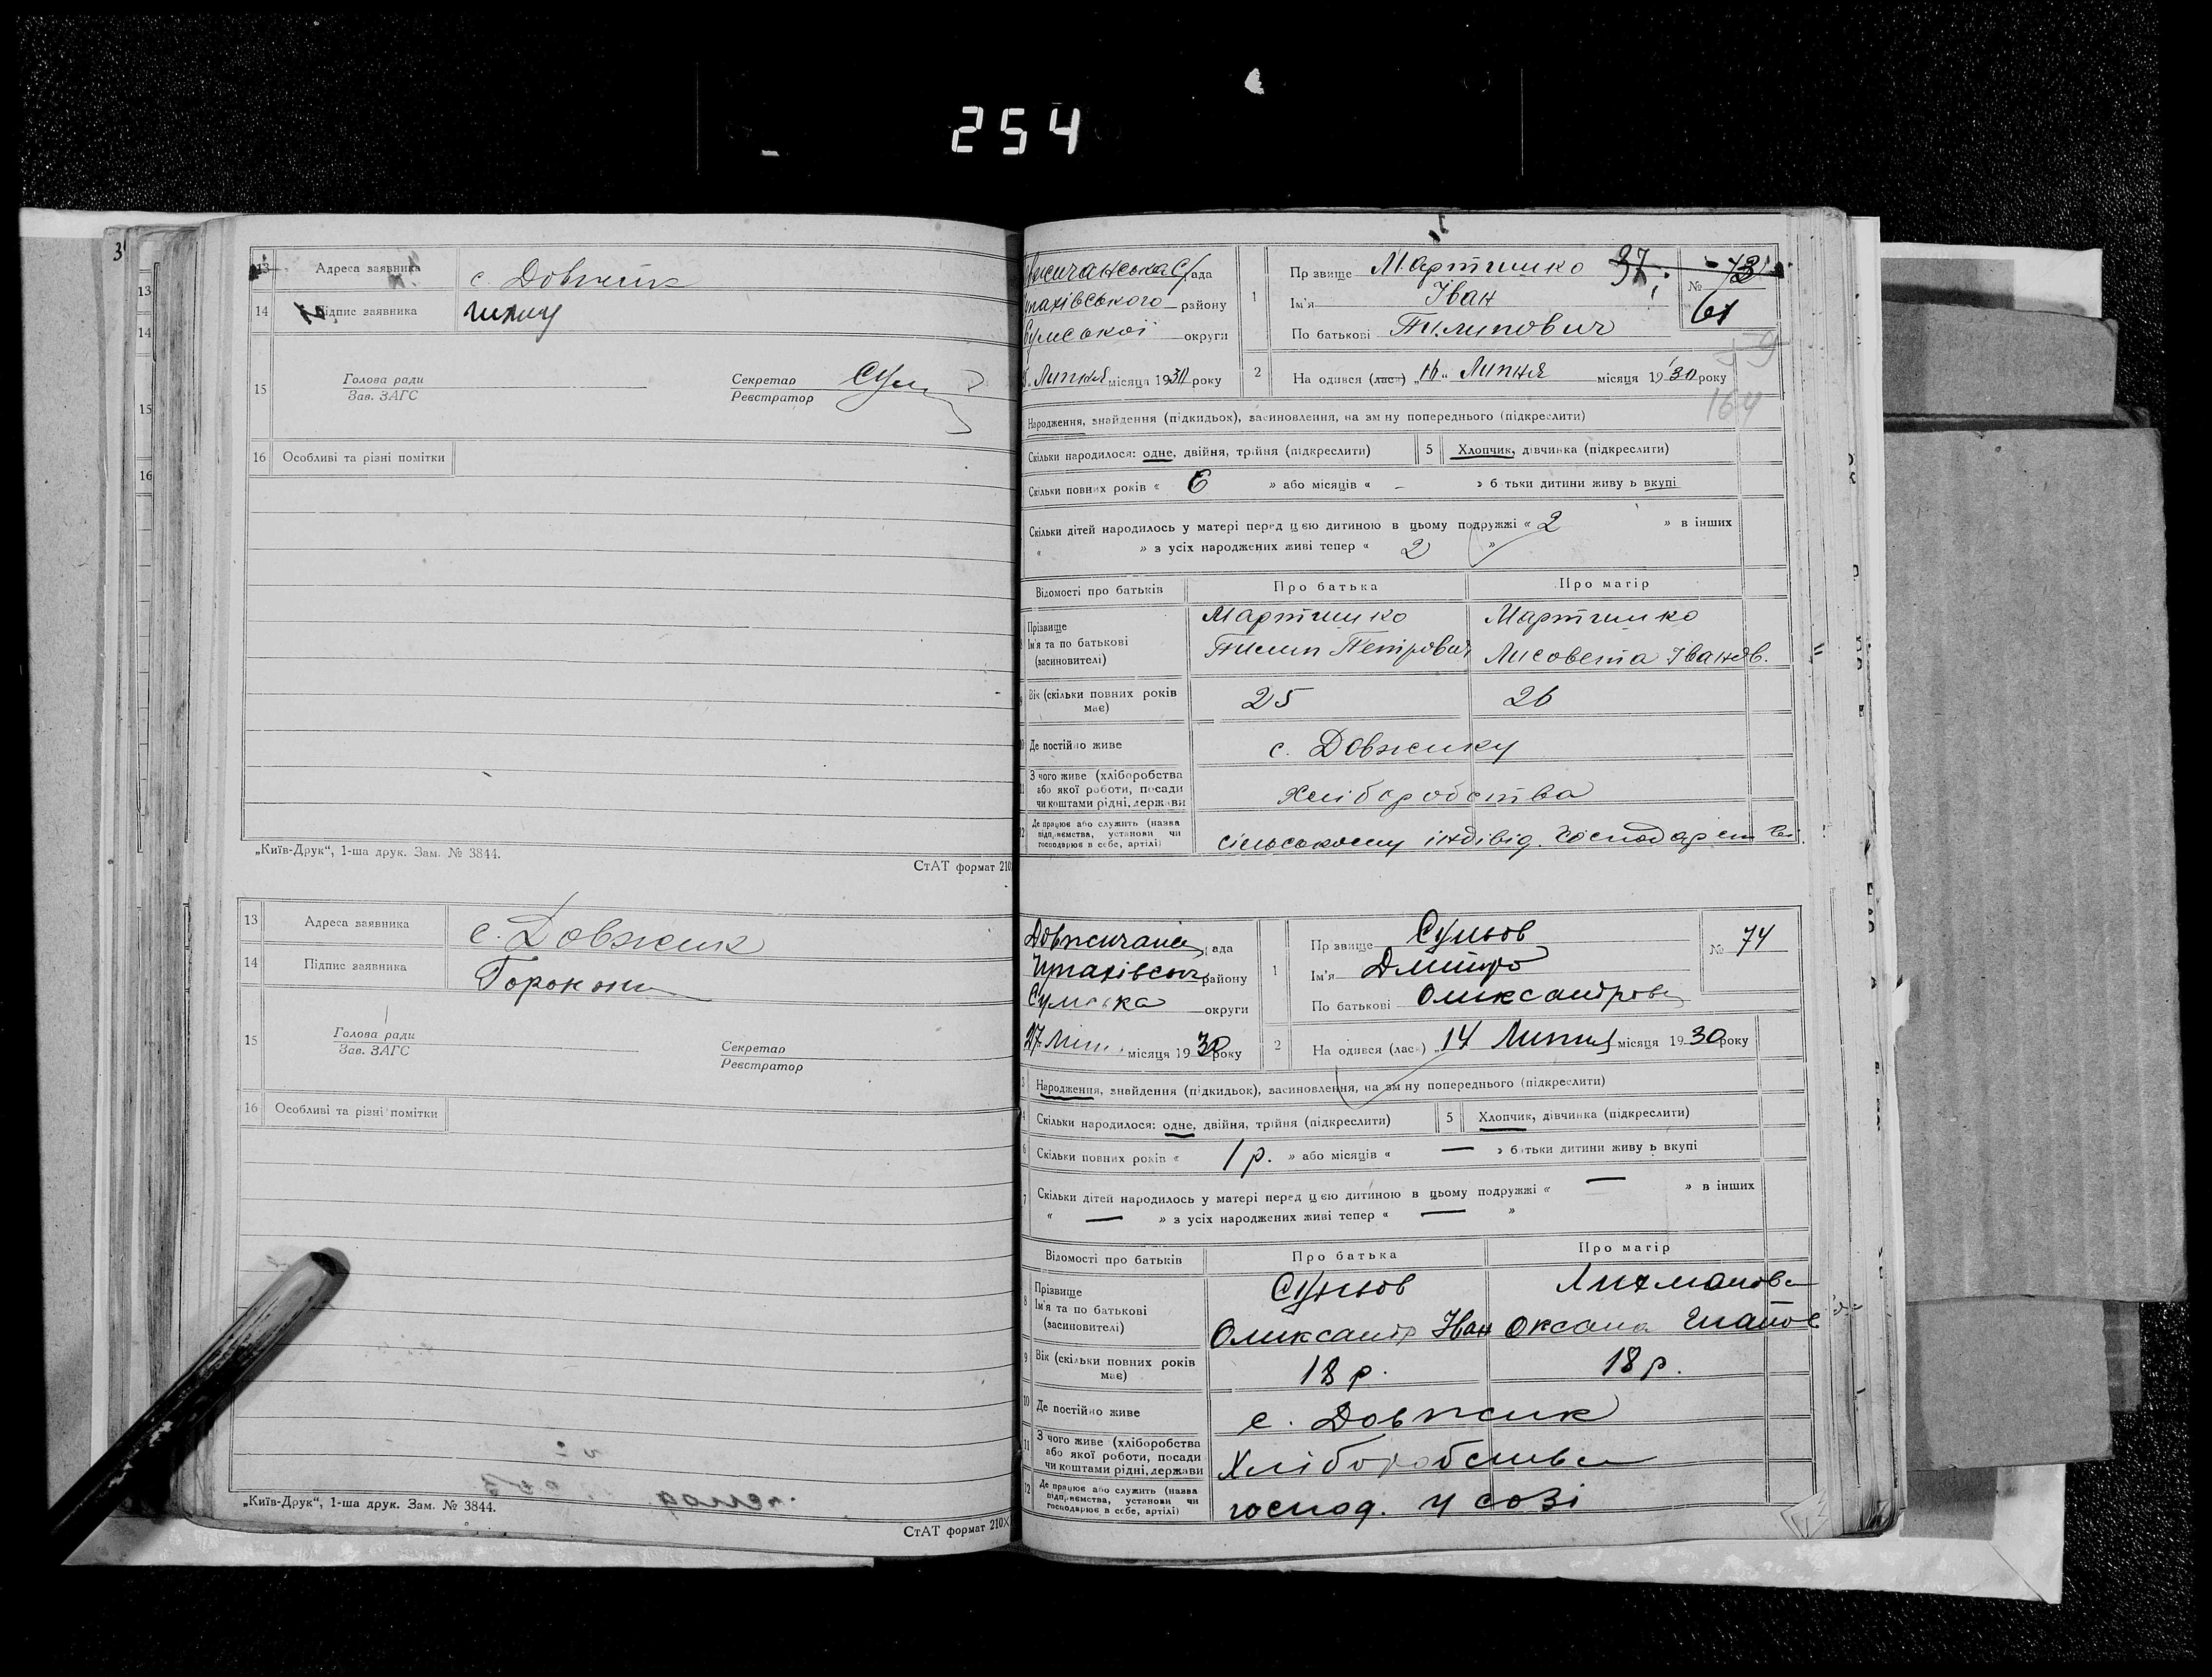 254
3
13 Адреса заявника с. Довжик
14 Підпис заявника
15 Голова ради
Зав. ЗАГС
Секретар
Реєстратор
16 Особливі та різні помітки
„Київ-Друк“, 1-ша друк. Зам. № 3844.
СтАТ формат 210
13 Адреса заявника с. Довжик
14 Підпис заявника
15 Голова ради
Зав. ЗАГС
Секретар
Реєстратор
16 Особливі та різні помітки
„Київ-Друк“, 1-ша друк. Зам. № 3844.
СтАТ формат 210X
13
14
15
16
ада
району
Сумської округи
Липня місяця 1930 року
1 Пр звище Мартишко 37
Ім'я Іван
По батькові Пилипович
№ 73
61
2 На одився (ласн) „16“ Липня місяця 1930 року
164
Народження, знайдення (підкидьок), засиновлення, на зм ну попереднього (підкреслити)
Скільки народилося: одне, двійня, трійня (підкреслити)
5 Хлопчик, дівчинка (підкреслити)
Скільки повних років « 6 » або місяців « - » б тьки дитини живу ь вкупі
Скільки дітей народилось у матері перед цією дитиною в цьому подружжі « 2 » в інших
« » з усіх народжених живі тепер « 2 »
Відомості про батьків Про батька Про матір
Прізвище Мартишко Мартишко
Ім'я та по батькові Пилип Петрович Лисовета Іванов.
(засновителі)
Вік (скільки повних років має) 25 26
Де постійно живе с. Довжику
З чого живе (хліборобства
або якої роботи, посади
чи коштами рідні, держави Хліборобства
Де працює або служить (назва
підприємства, установи чи
господарює в себе, артілі) сільському індівід. господарств
ада
району
Сумська округи
27 місяця 1930 року
1 Пр звище
Ім'я Дмитро
По батькові
№ 74
2 На одився (ласн) „14 Липня місяця 1930 року
3 Народження, знайдення (підкидьок), засиновлення, на зм ну попереднього (підкреслити)
4 Скільки народилося: одне, двійня, трійня (підкреслити)
5 Хлопчик, дівчинка (підкреслити)
6 Скільки повних років « 1 р. » або місяців « — » б тьки дитини живу ь вкупі
7 Скільки дітей народилось у матері перед цією дитиною в цьому подружжі « — » в інших
« — » з усіх народжених живі тепер « — »
Відомості про батьків Про батька Про матір
8 Прізвище
Ім'я та по батькові Іван Оксана
(засновителі)
9 Вік (скільки повних років має) 18 р. 18 р.
10 Де постійно живе с. Довжик
11 З чого живе (хліборобства
або якої роботи, посади
чи коштами рідні, держави Хліборобства
12 Де працює або служить (назва
підприємства, установи чи
господарює в себе, артілі) господ. у созі